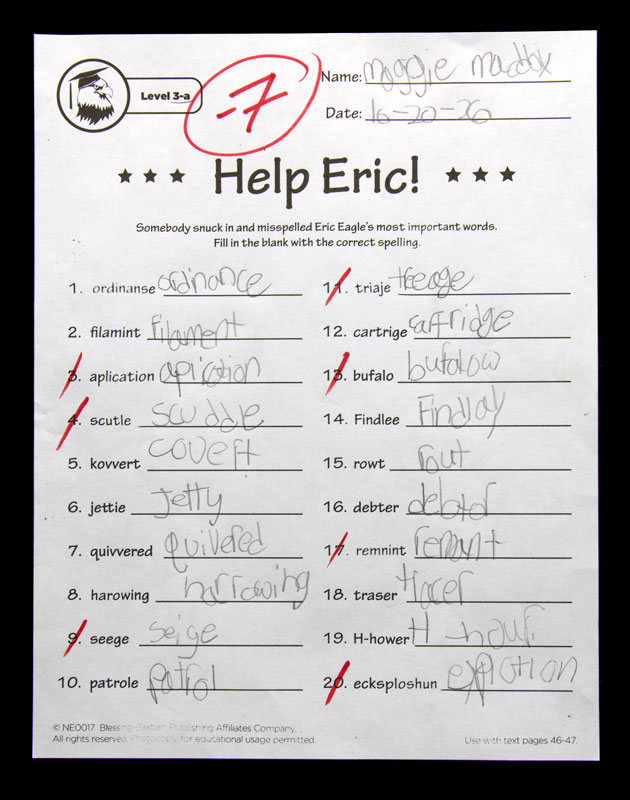 Level 3-a
-7
Name: maggie maddix
Date: 10-20-20
Help Eric!
Somebody snuck in and misspelled Eric Eagle's most important words.
Fill in the blank with the correct spelling.
1. ordinanse ordinance
2. filamint filament
3. aplication apication
4. scutle scuddle
5. kovvert covert
6. jettie jetty
7. quivvered quivered
8. harowing harrowing
9. seege seige
10. patrole patrol
11. triaje treoge
12. cartrige cartridge
13. bufalo bufalow
14. Findlee Findlay
15. rowt rout
16. debter debtor
17. remnint
18. traser tracer
19. H-hower H-hour
20. ecksploshun explotion
© NE0017 Blessing-Bastian Publishing Affiliates Company.
All rights reserved. Photocopy for educational usage permitted.
Use with text pages 46-47.